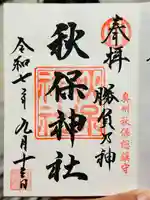 奉拝
奥州秋保総鎮守
勝負の神
秋保神社
令和七年九月十三日